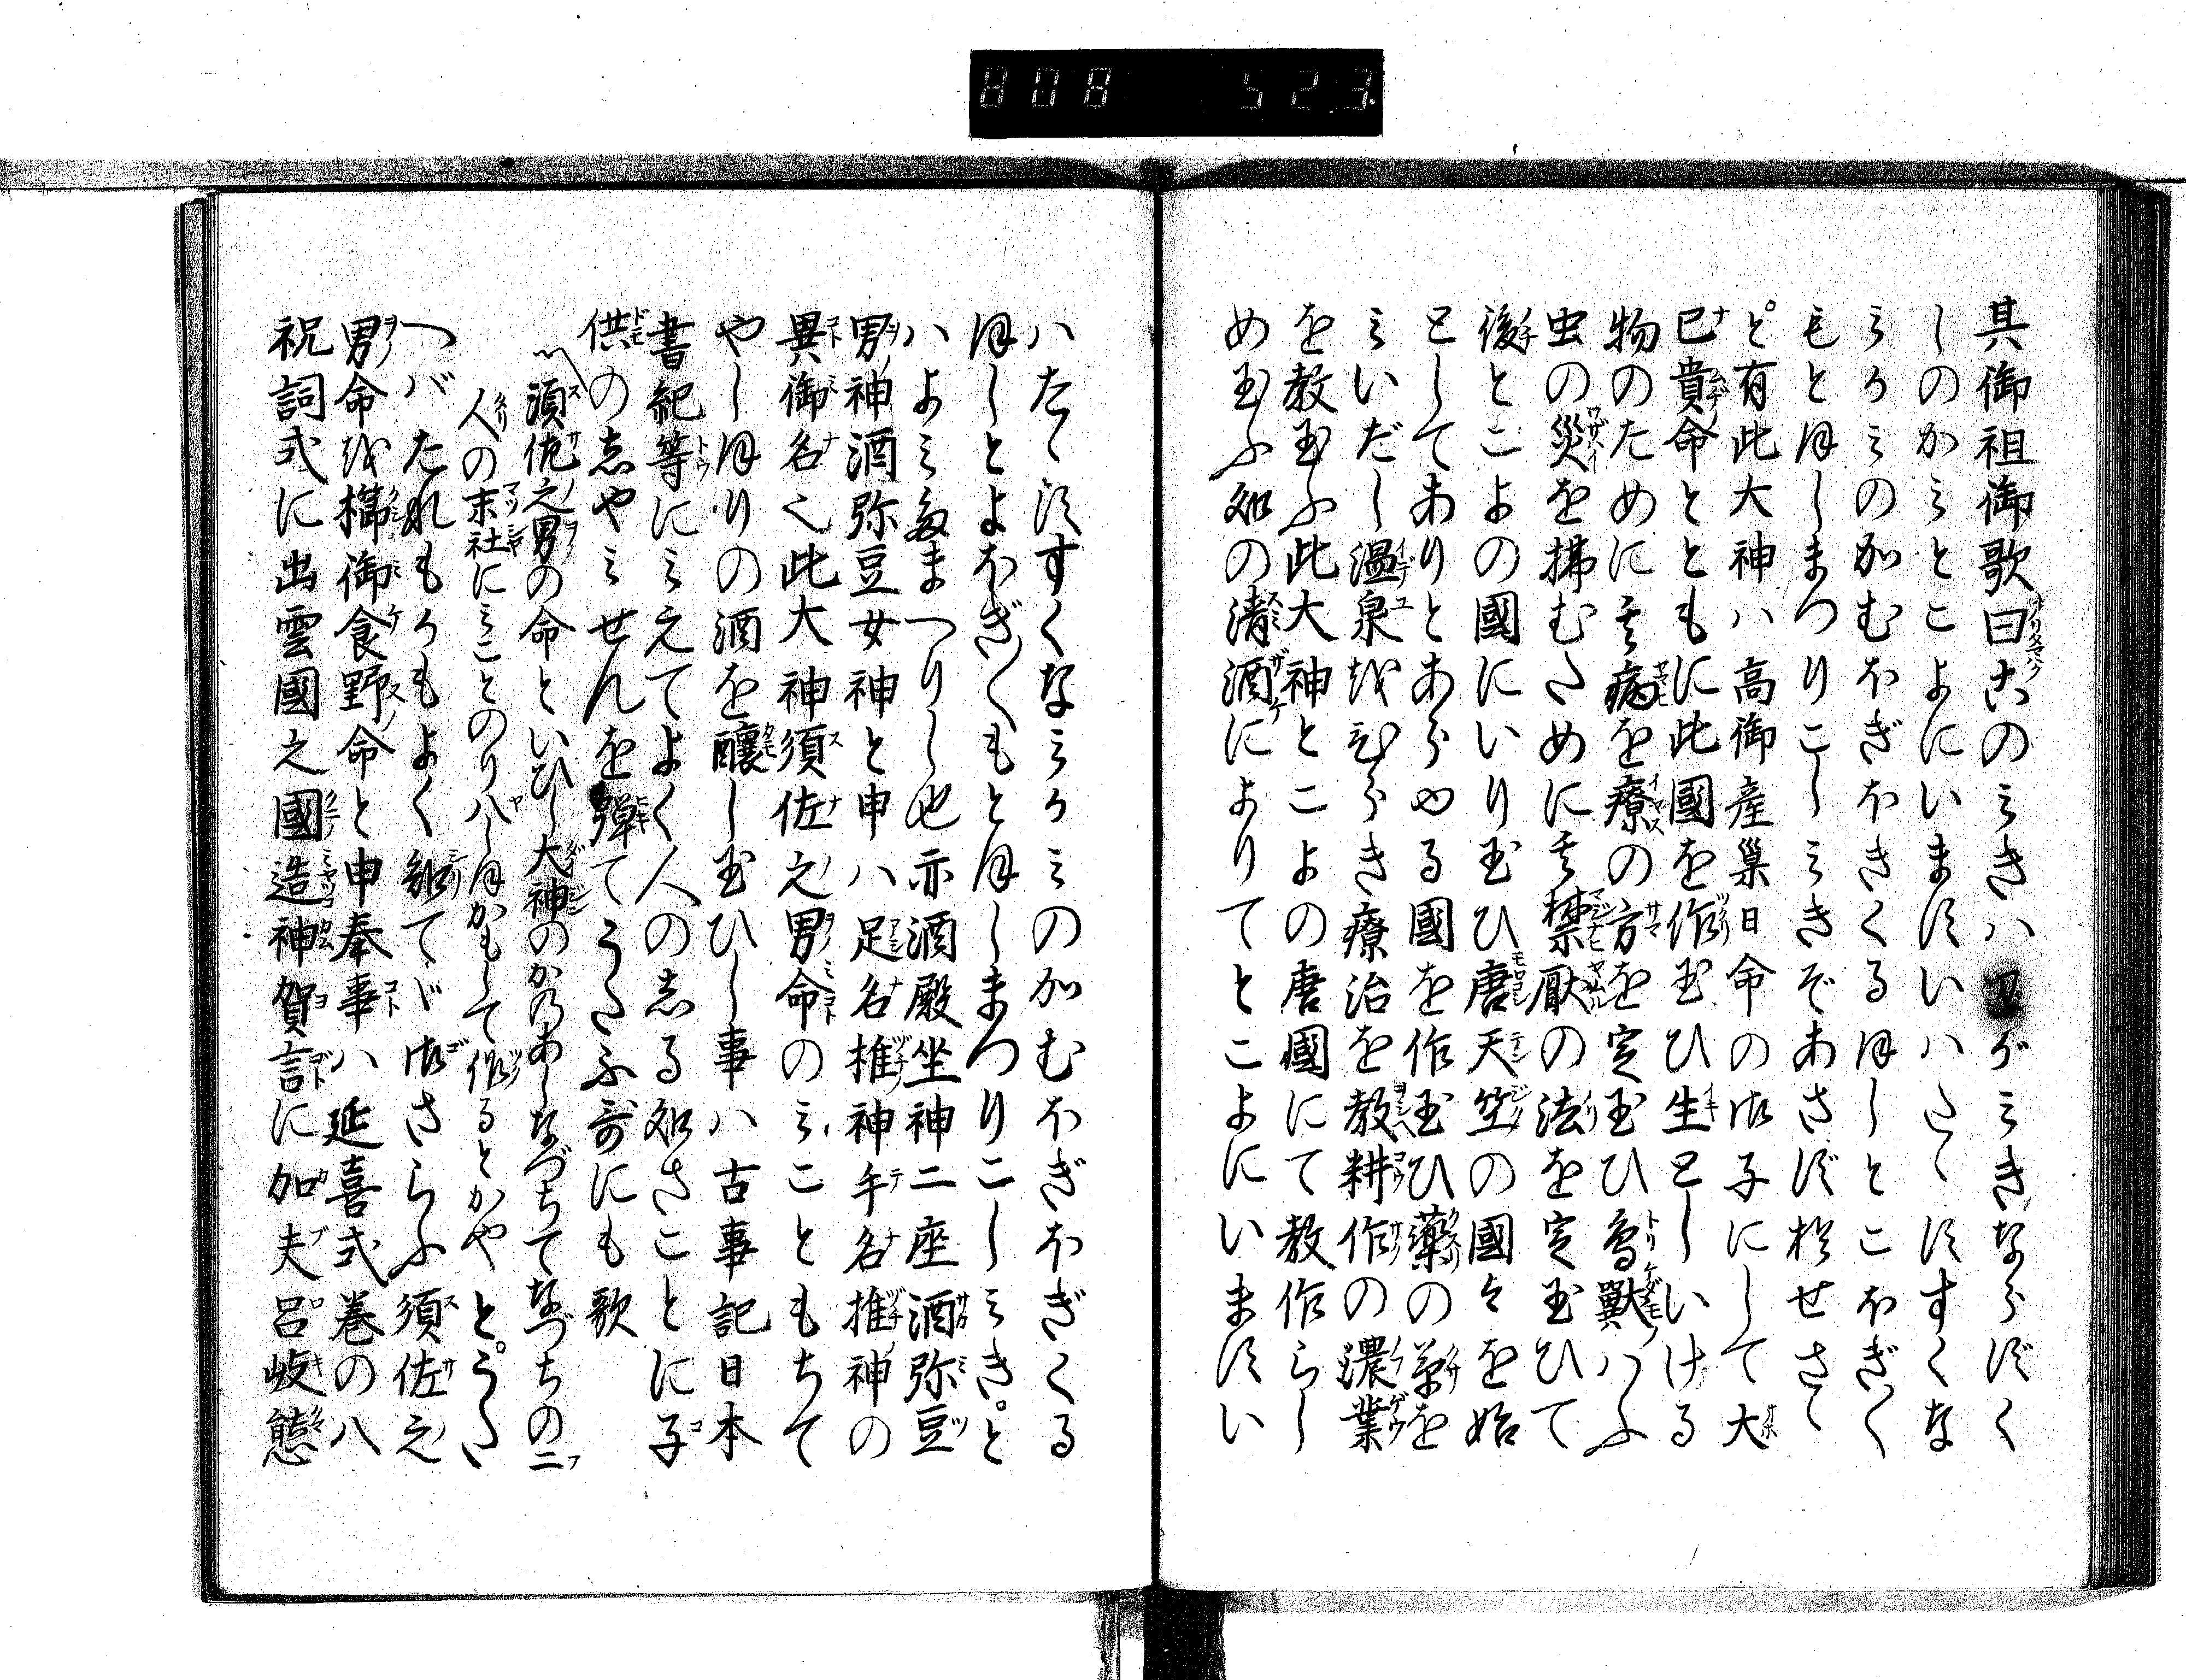 808 523
其御祖御歌曰このみきハワがみきならずく
しのかみとこよにいますいハたゝすすくな
みかみのかむほぎほきくるほしとこほぎく
もとほしまつりこしみきぞあさず於せさゝ
と有此大神ハ高御産巣日命の御子にして大
已貴命とともに此國を作玉ひ生としいける
物のために其病を療の方を定玉ひ鳥獣はふ
虫の災を拂むためにその禁厭の法を定玉ひて
後とこよの國にいり玉ひ唐天竺の國々を始
としてありとあらゆる國を作玉ひ藥の草を
みいだし温泉をひらき療治を教耕作の濃業
を教玉ふ此大神とこよの唐國にて教作らし
め玉ふ処の清酒によりてとこよにいますい
ハたゝすすくなみかみのかむほぎほぎくる
ほしとよほぎ〱もとほしまつりこしみきと
ハよみ給まつりし也亦酒殿坐神二座酒弥豆
男神酒弥豆女神と申ハ足名推神手名推神の
異御名也此大神須佐之男命のみこともちて
やしほりの酒を醸し玉ひし事ハ古事記日本
書紀等にみえてよく人のしる処さことに子
供のしやみせんを弾てうたふ哥にも歌
〽須佐之男の命といひし大神のかのあしなづちてなづちの二
人の末社にみことのり八しほかもして作るとかや とうた
へバたれもかもよく知てぞ御さらふ須佐之
男命を櫛御食野命と申奉事ハ延喜式巻の八
祝詞式に出雲國之國造神賀言に加夫呂岐熊